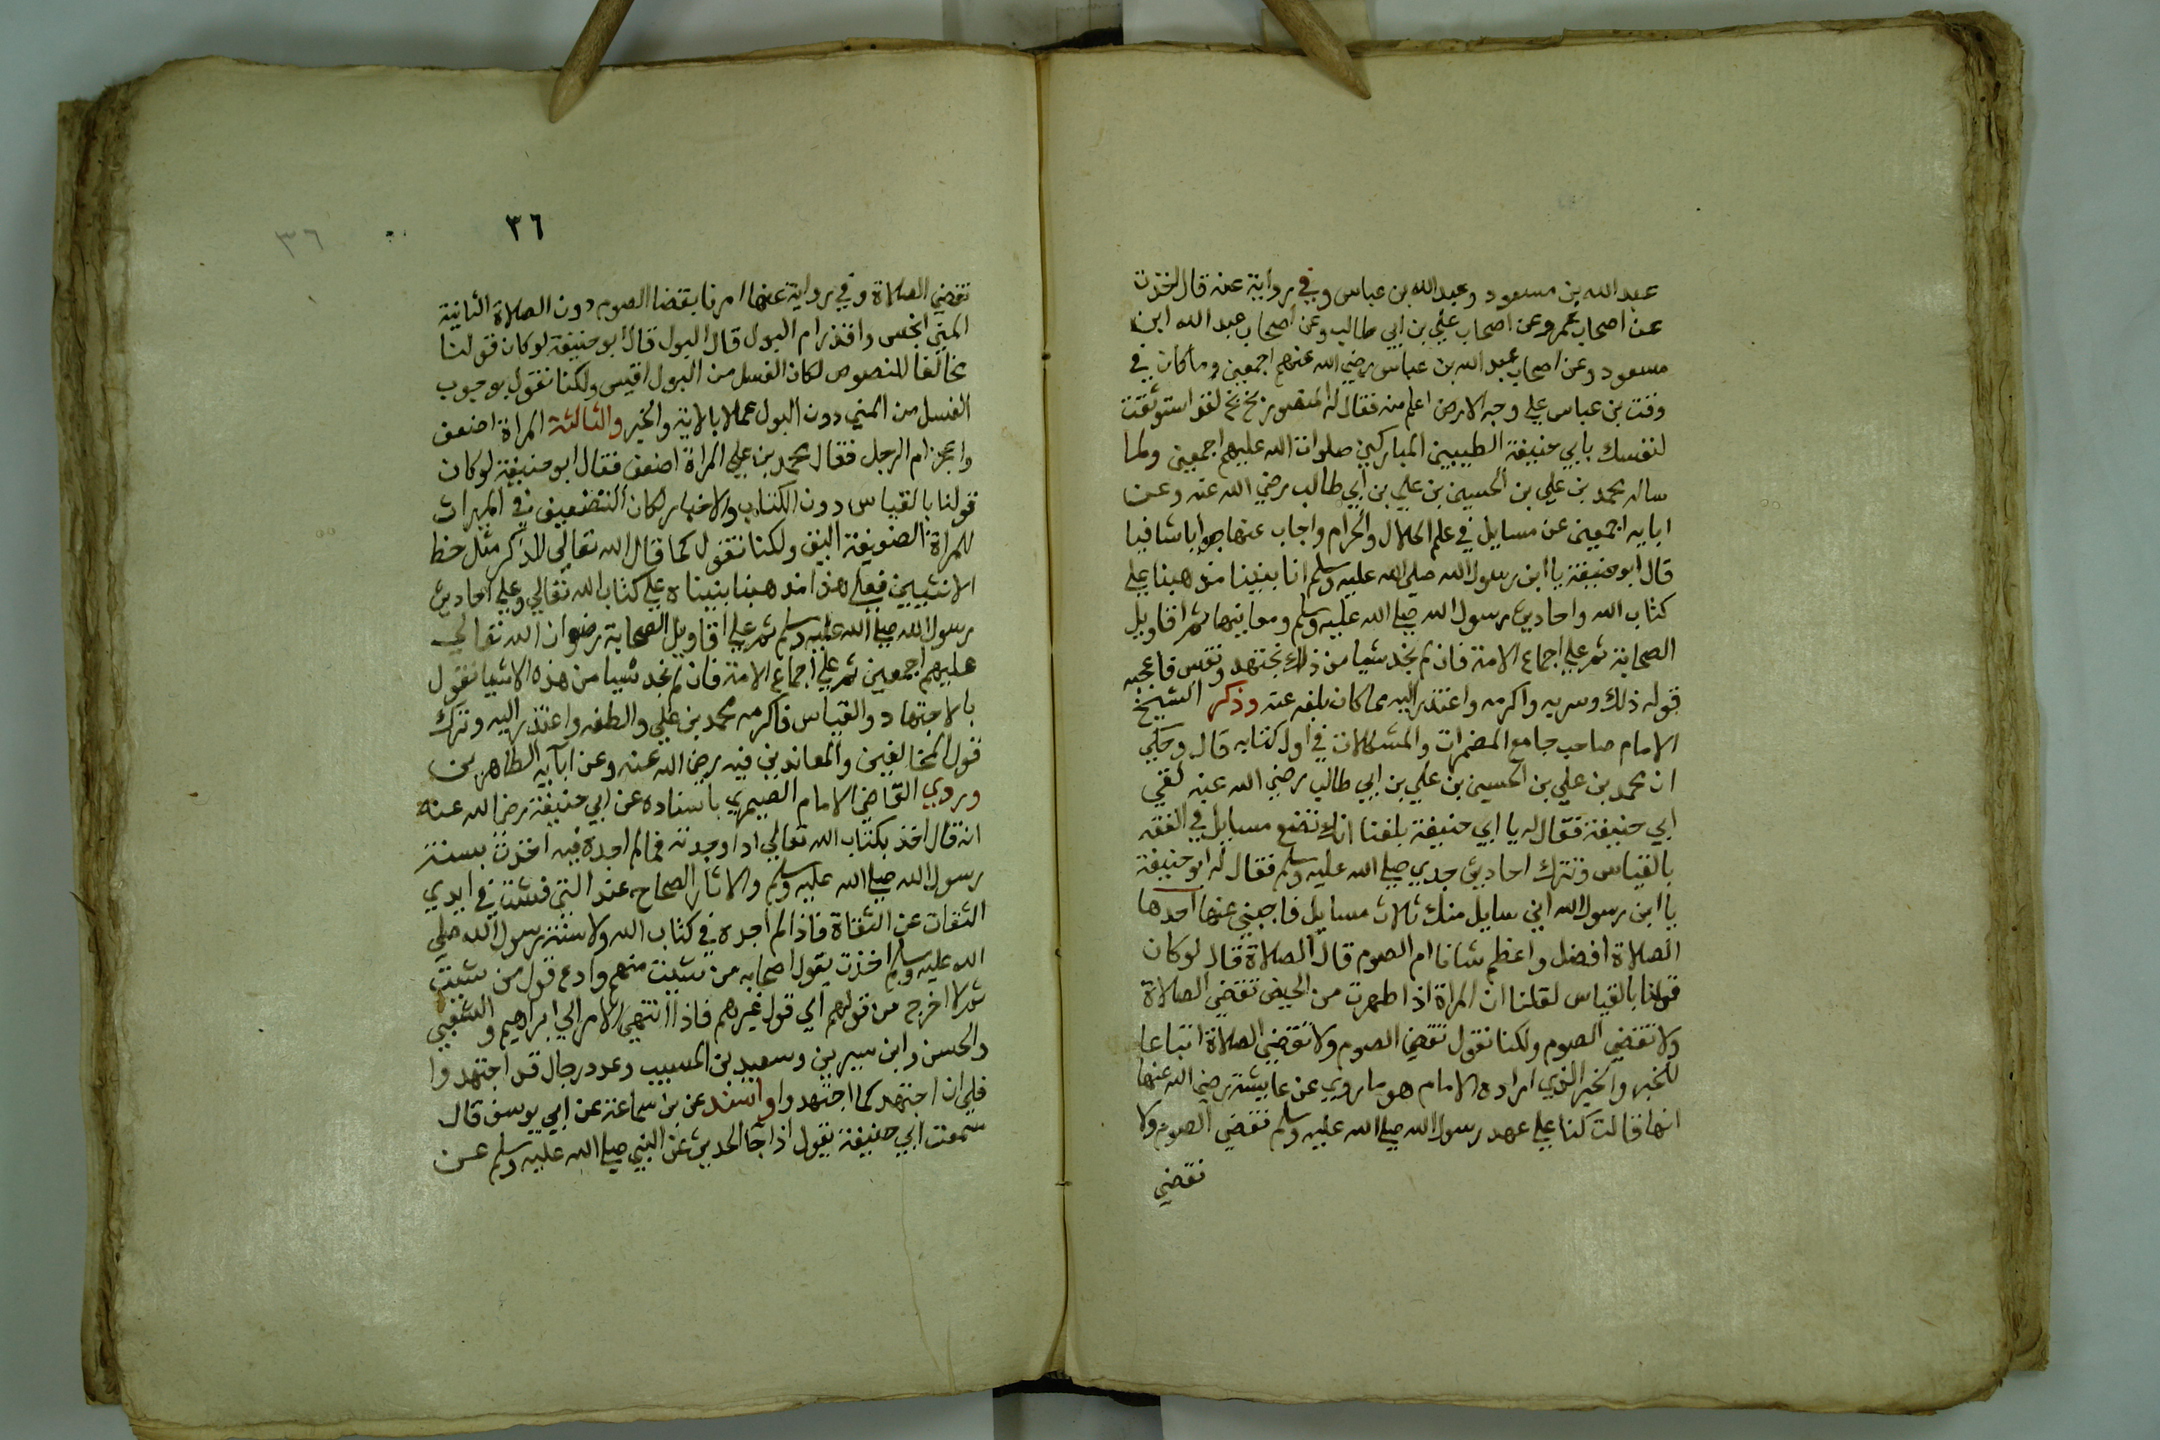 عبد الله بن مسعود وعبد الله بن عباس وفي رواية عنه قال اخذت
عن اصحاب عمر وعن اصحاب علي بن ابي طالب وعن اصحاب عبد الله ابن
مسعود وعن اصحاب عبد الله بن عباس رضي الله عنهم اجمعين وما كان في
وقت بن عباس علي وجه الارض اعلم منه فقال له المنصور بخ بخ لقد استوثقت
لنفسك يا ابي حنيفة الطيبين المباركين صلوات الله عليهم اجمعين ولما
ساله محمد بن علي بن الحسين بن علي بن ابي طالب رضي الله عنه وعن
ابايه اجمعين عن مسايل في علم الحلال والحرام واجاب عنها جوابا شافيا
قال ابو حنيفة يا ابن رسول الله صلي الله عليه وسلم انا بنينا مذهبنا علي
كتاب الله واحاديث رسول الله صلي الله عليه وسلم ومعانيها ثم اقاويل
الصحابة ثم علي اجماع الامة فان لم نجد شيا من ذلك نجتهد ونقس فاعجبه
قوله ذلك وسر به واكرمه واعتذر اليه مما كان بلغه عنه وذكر الشيخ
الامام صاحب جامع المضمرات والمشكلات في اول كتابه قال وحكي
ان محمد بن علي بن الحسين بن علي بن ابي طالب رضي الله عنه لقي
ابي حنيفة فقال له يا ابي حنيفة بلغنا انك تضع مسايل في الفقه
بالقياس وتترك احاديث جدي صلي الله عليه وسلم فقال له ابو حنيفة
يا ابن رسول الله اني سايل منك ثلاث مسايل فاجبني عنها احدها
الصلاة افضل واعظم شانا ام الصوم قال الصلاة قال لو كان
قولنا بالقياس لقلنا ان المراة اذا طهرت من الحيض تقضي الصلاة
ولا تقضي الصوم ولكنا نقول تقضي الصوم ولا تقضي الصلاة اتباعا
للخبر والخبر الذي اراده الامام هو ما روي عن عايشة رضي الله عنها
انها قالت كنا علي عهد رسول الله صلي الله عليه وسلم نقضي الصوم ولا
نقضي
٣٦
٣٦
نقضي الصلاة وفي رواية عنها امرنا بقضا الصوم دون الصلاة الثانية
المني انجس واقذر ام البول قال البول قال ابو حنيفة لو كان قولنا
مخالفا للنصوص لكان الغسل من البول اقيس ولكنا نقول بوجوب
الغسل من المني دون البول عملا بالاية والخبر والثالثة المراة اضعف
واعجز ام الرجل فقال محمد بن علي المراة اضعف فقال ابو حنيفة لو كان
قولنا بالقياس دون الكتاب والاخبار لكان التضعيف في الميراث
للمراة الضعيفة اليق ولكنا نقول كما قال الله تعالي للذكر مثل حظ
الانثيين فعلي هذا مذهبنا بنيناه علي كتاب الله تعالي وعلي احاديث
رسول الله صلي الله عليه وسلم ثم علي اقاويل الصحابة رضوان الله تعالي
عليهم اجمعين ثم علي اجماع الامة فان لم نجد شيا من هذه الاشيا نقول
بالاجتهاد والقياس فاكرمه محمد بن علي والطفه واعتذر اليه وترك
قول المخالفين والمعاندين فيه رضي الله عنه وعن ابآيه الطاهرين
وروي القاضي الامام الصيمري باسناده عن ابي حنيفة رضي الله عنه
انه قال اخذ بكتاب الله تعالي اذا وجدته فما لم اجده فيه اخذت بسنة
رسول الله صلي الله عليه وسلم والاثار الصحاح عند التي فشت في ايدي
الثقات عن الثقاة فاذا لم اجده في كتاب الله ولا سنة رسول الله صلي
الله عليه وسلم اخذت بقول اصحابه من شيت منهم وادع قول من شيت
ثم لا اخرج من قولهم اي قول غيرهم فاذا انتهي الامر الي ابراهيم والشعبي
والحسن وابن سيرين وسعيد بن المسيب وعدد رجال قد اجتهدوا
فلي ان اجتهد كما اجتهدوا واسند عن بن سماعة عن ابي يوسف قال
سمعت ابي حنيفة يقول اذا جآ الحديث عن النبي صلي الله عليه وسلم عن